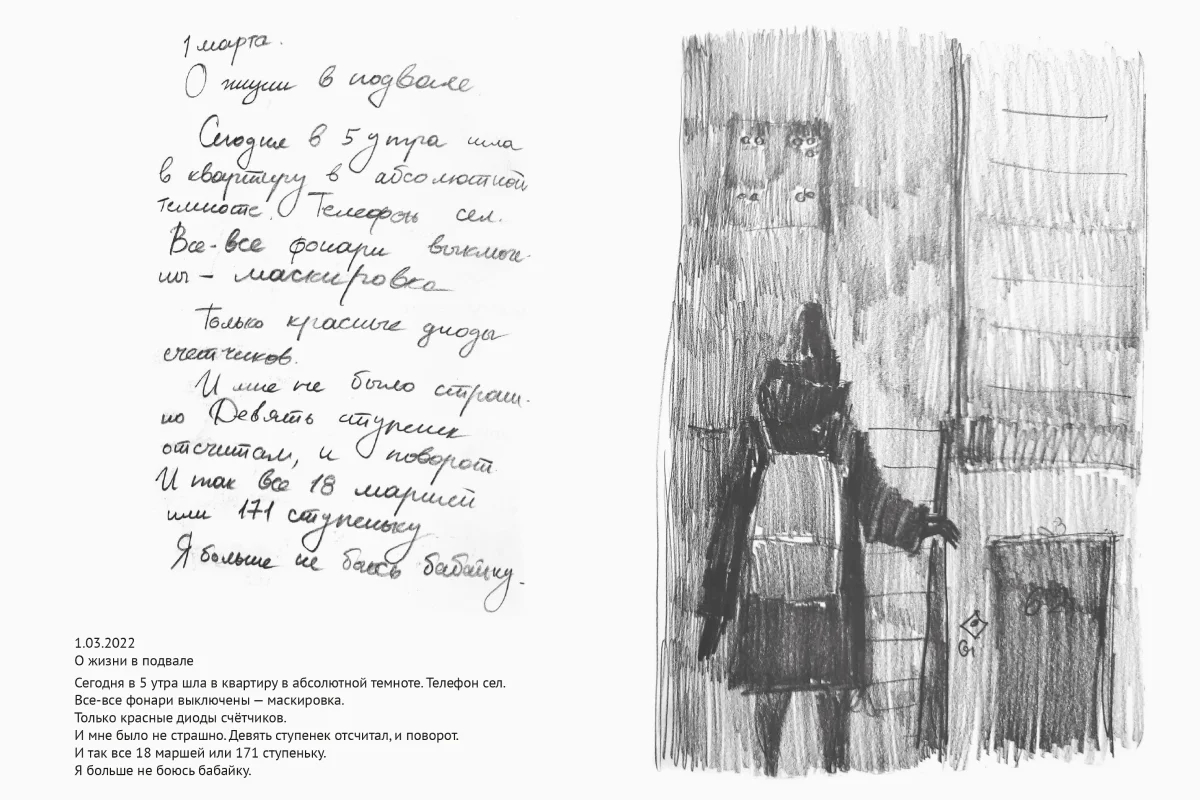 1 марта.
О жизни в подвале
Сегодня в 5 утра шла
в квартиру в абсолютной
темноте. Телефон сел.
Все-все фонари выключе-
ны – маскировка
Только красные диоды
счетчиков.
И мне не было страш-
но Девять ступенек
отсчитал, и поворот
И так все 18 маршей
или 171 ступеньку
Я больше не боюсь бабайку.
1.03.2022
О жизни в подвале
Сегодня в 5 утра шла в квартиру в абсолютной темноте. Телефон сел.
Все-все фонари выключены — маскировка.
Только красные диоды счётчиков.
И мне было не страшно. Девять ступенек отсчитал, и поворот.
И так все 18 маршей или 171 ступеньку.
Я больше не боюсь бабайку.